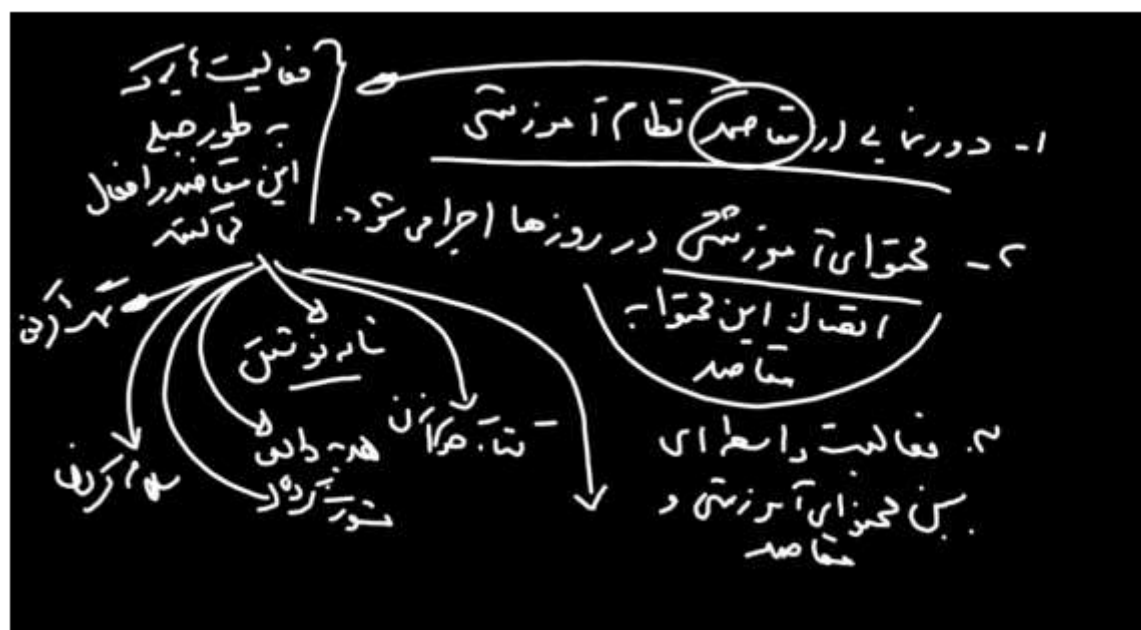 ۱- دورنمایی از مقاصد نظام آموزشی
۲- محتوای آموزشی در روزها اجرا می شود.
اتصال این محتوا به
مقاصد
۳. فعالیت واسطه ای
بین محتوای آموزشی و
مقاصد
فعالیت هایی که
به طور طبیعی
این مقاصد را فعال
می کنند
نامه نوشتن
کتاب خواندن
هدیه دادن
مشورت کردن
سلام کردن